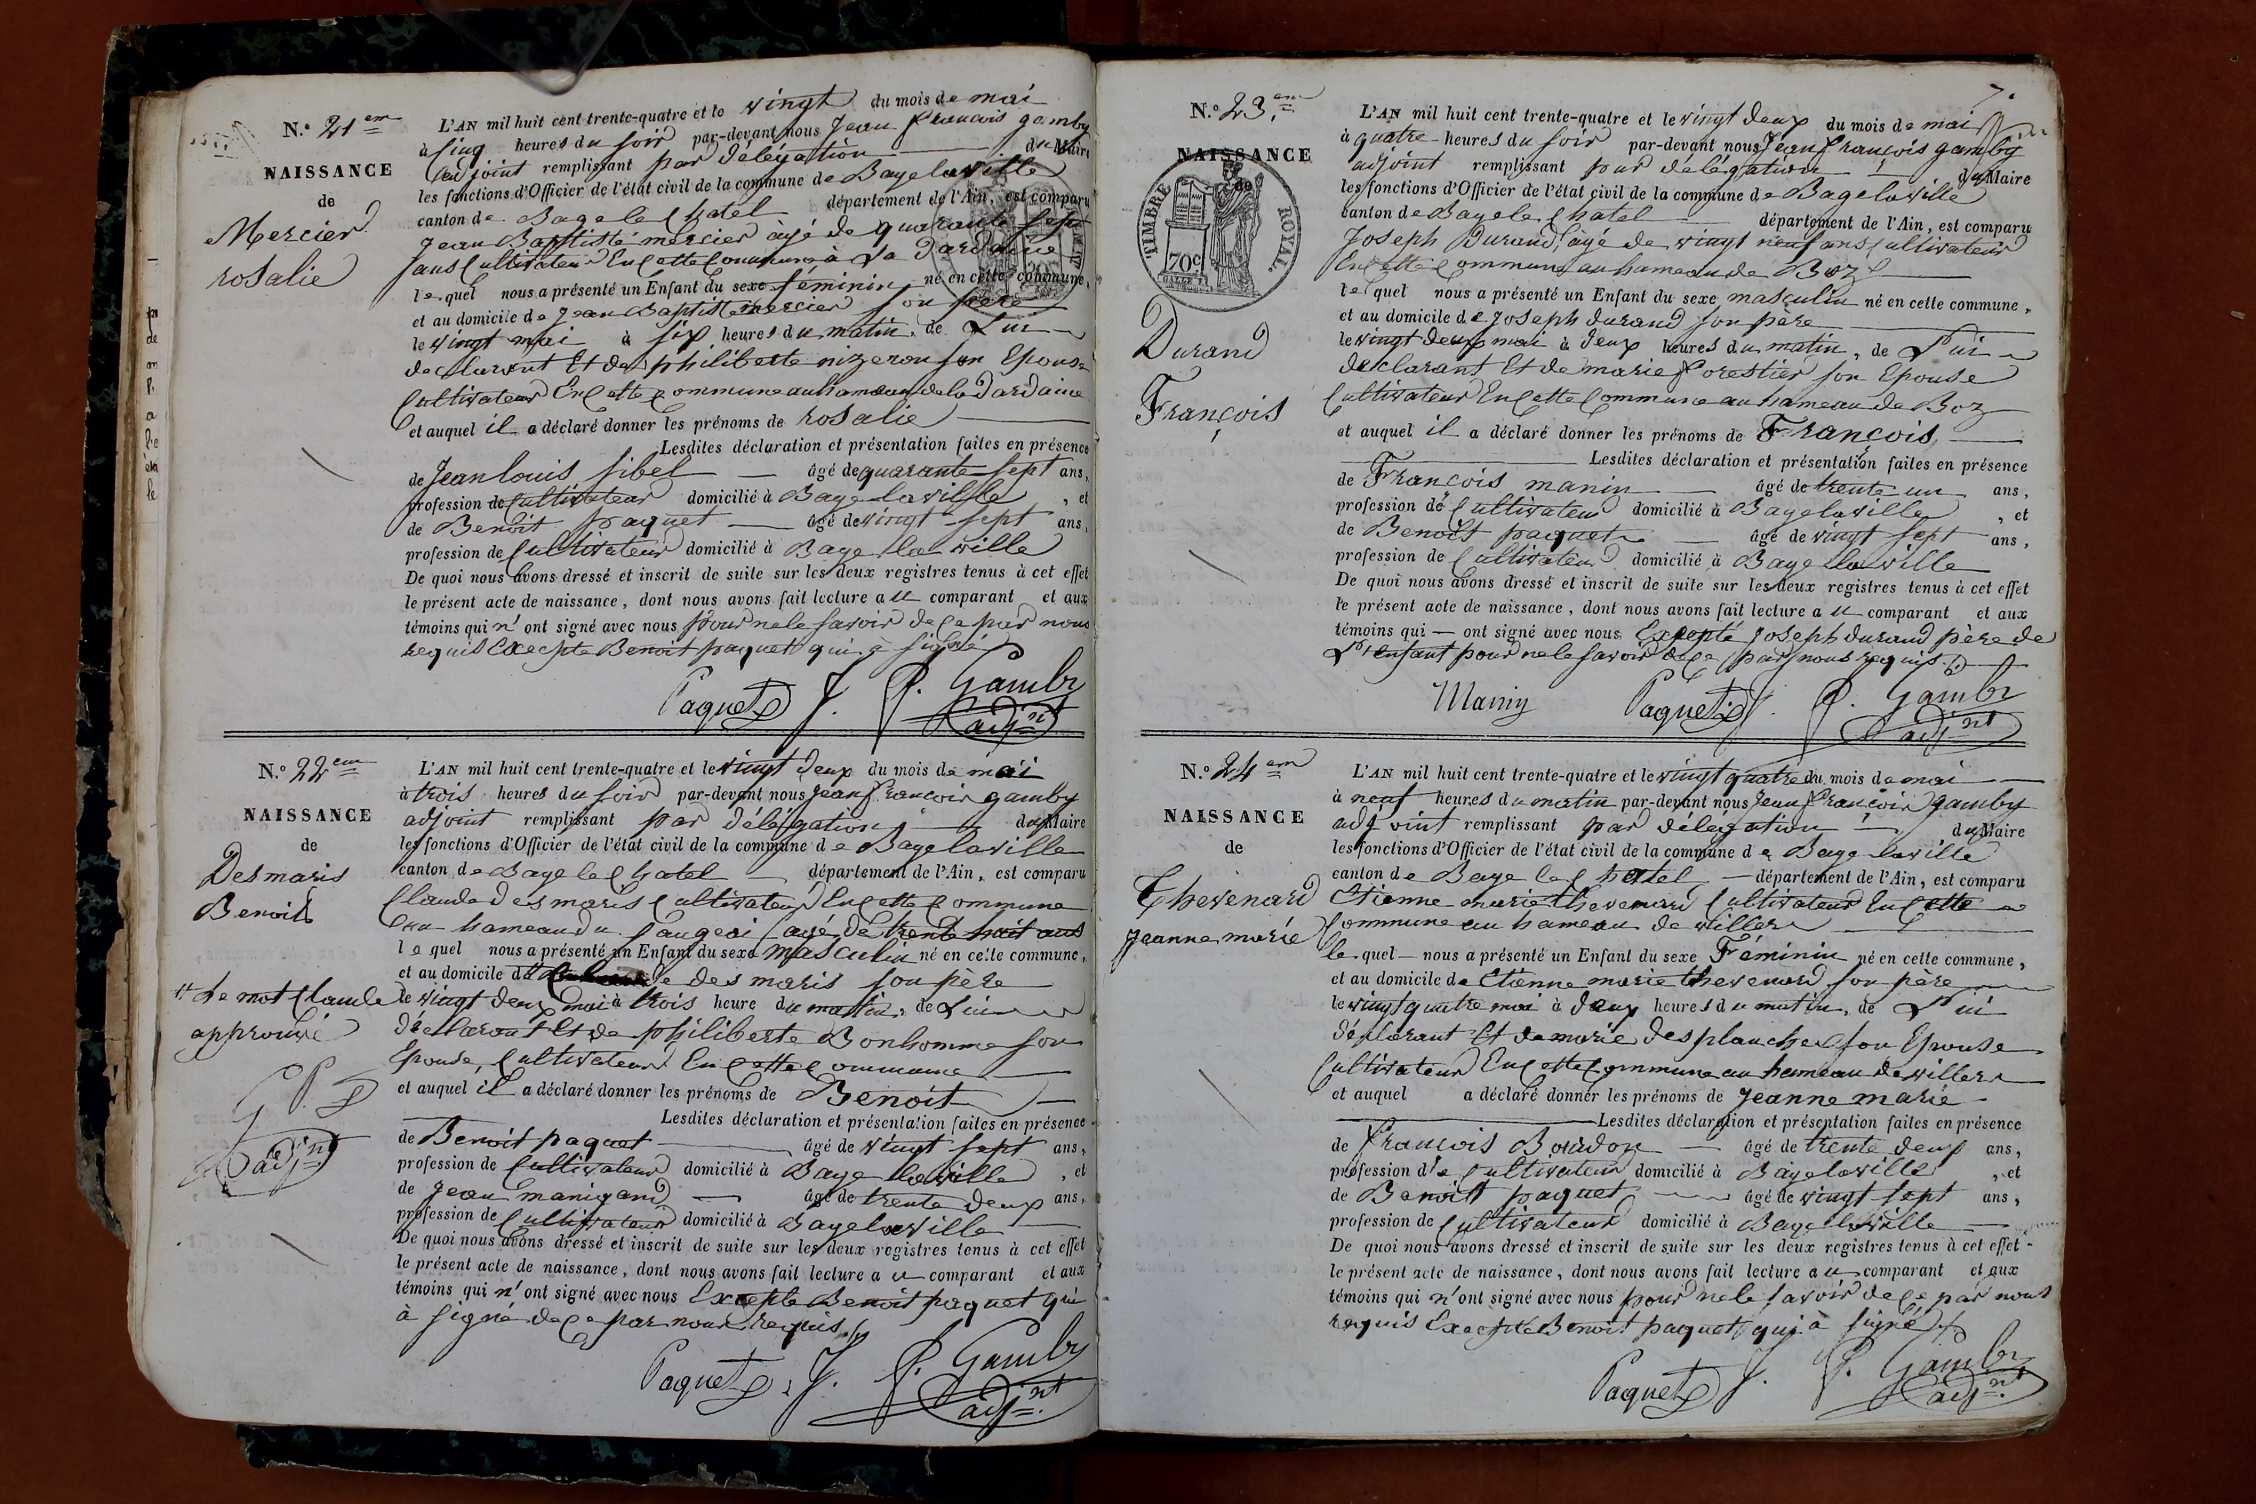 N.º 21em
NAISSANCE
de
Mercier
rosalie
L'AN mil huit cent trente-quatre et le vingt du mois de mai
à cinq heures du soir par-devant nous Jean francois gamby
adjoint remplissant par délégation du Maire
les fonctions d'Officier de l'état civil de la commune de Bagelaville
canton de Bage le Chatel département de l'Ain, est comparu
Jean Baptiste mercier agé de quarante sept
ans Cultivateur En cette Commune à La Dardaine
lequel nous a présenté un Enfant du sexe féminin né en cette commune,
et au domicile de Jean Baptiste mercier son père
le vingt mai à six heures du matin, de Lui
declarant Et de philiberte nizeron son Epouse
Cultivateur En cette commune au hameau de la Dardaine
et auquel il a déclaré donner les prénoms de rosalie
Lesdites déclaration et présentation faites en présence
de Jean louis sibel âgé de quarante sept ans,
profession de Cultivateur domicilié à Bage la ville, et
de Benoit paquet âgé de vingt sept ans,
profession de Cultivateur domicilié à Bage la ville
De quoi nous avons dressé et inscrit de suite sur les deux registres tenus à cet effet
le présent acte de naissance, dont nous avons fait lecture au comparant et aux
témoins qui n' ont signé avec nous pour ne le savoir de ce par nous
requis Excepte Benoit paquet qui à signé
Paquet J. f. Gamby
adjnt
N.º 22em
NAISSANCE
de
Desmaris
Benoit
# Le mot Claude
approuvé
G
adjnt
L'AN mil huit cent trente-quatre et le vingt deux du mois de mai
à trois heures du soir par-devant nous Jean francois gamby
adjoint remplissant par délégation du Maire
les fonctions d'Officier de l'état civil de la commune de Bagelaville
canton de Bage le Chatel département de l'Ain, est comparu
Claude Desmaris Cultivateur En cette Commune
au hameau du agé de trente huit ans
lequel nous a présenté un Enfant du sexe masculin né en cette commune,
et au domicile de # desmaris son père
le vingt deux mai à trois heure du matin, de Lui
déclarant Et de philiberte Bonhomme son
Epouse, Cultivateur En cette commune
et auquel il a déclaré donner les prénoms de Benoit
Lesdites déclaration et présentation faites en présence
de Benoit paquet âgé de vingt sept ans,
profession de Cultivateur domicilié à Bage la ville, et
de Jean manigand âgé de trente deux ans,
profession de Cultivateur domicilié à Bagelaville
De quoi nous avons dressé et inscrit de suite sur les deux registres tenus à cet effet
le présent acte de naissance, dont nous avons fait lecture au comparant et aux
témoins qui n' ont signé avec nous Excepte Benoit paquet qui
à signé de ce par nous requis
Paquet J. f. Gamby
adjnt
7.
N.º 23.em
NAISSANCE
de
TIMBRE ROYAL.
70c
Durand
François
L'AN mil huit cent trente-quatre et le vingt deux du mois de mai
à quatre heures du soir par-devant nous Jean francois gamby
adjoint remplissant par délégation du Maire
les fonctions d'Officier de l'état civil de la commune de Bagelaville
canton de Bage le Chatel département de l'Ain, est comparu
Joseph Durand, agé de vingt neuf ans Cultivateur
En cette Commune au hameau de Boz
lequel nous a présenté un Enfant du sexe masculin né en cette commune,
et au domicile de Joseph durand son père
le vingt deux mai à deux heures du matin, de Lui
declarant Et de marie forestier son Epouse
Cultivateur En cette Commune au hameau de Boz
et auquel il a déclaré donner les prénoms de François,
Lesdites déclaration et présentation faites en présence
de François manin âgé de trente un ans,
profession de Cultivateur domicilié à Bagelaville, et
de Benoit paquet âgé de vingt sept ans,
profession de Cultivateur domicilié à Bage la ville
De quoi nous avons dressé et inscrit de suite sur les deux registres tenus à cet effet
le présent acte de naissance, dont nous avons fait lecture au comparant et aux
témoins qui — ont signé avec nous Excepté Joseph durand père de
L'enfant pour ne le savoir de ce par nous requis.
Manin Paquet J. f. Gamby
adjnt
N.º 24em
NAISSANCE
de
Thevenard
Jeanne marie
L'AN mil huit cent trente-quatre et le vingt quatre du mois de mai
à neuf heures du matin par-devant nous Jean francois gamby
adjoint remplissant par délégation du Maire
les fonctions d'Officier de l'état civil de la commune de Bage laville
canton de Bage le Chatel département de l'Ain, est comparu
Etienne marie thevenard Cultivateur En cette
Commune au hameau de villers
lequel nous a présenté un Enfant du sexe Féminin né en cette commune,
et au domicile de Etienne marie thevenard son père
le vingt quatre mai à deux heures du matin, de Lui
déclarant Et de marie desplanches son Epouse
Cultivateur En cette Commune au hameau de villers
et auquel a déclaré donner les prénoms de Jeanne marie
Lesdites déclaration et présentation faites en présence
de francois Bourdon âgé de trente deux ans,
profession de Cultivateur domicilié à Bagelaville, et
de Benoit paquet âgé de vingt sept ans,
profession de Cultivateur domicilié à Bage la ville
De quoi nous avons dressé et inscrit de suite sur les deux registres tenus à cet effet
le présent acte de naissance, dont nous avons fait lecture au comparant et aux
témoins qui n' ont signé avec nous pour ne le savoir de ce par nous
requis Excepte Benoit paquet qui à signé
Paquet J. f. Gamby
adjnt